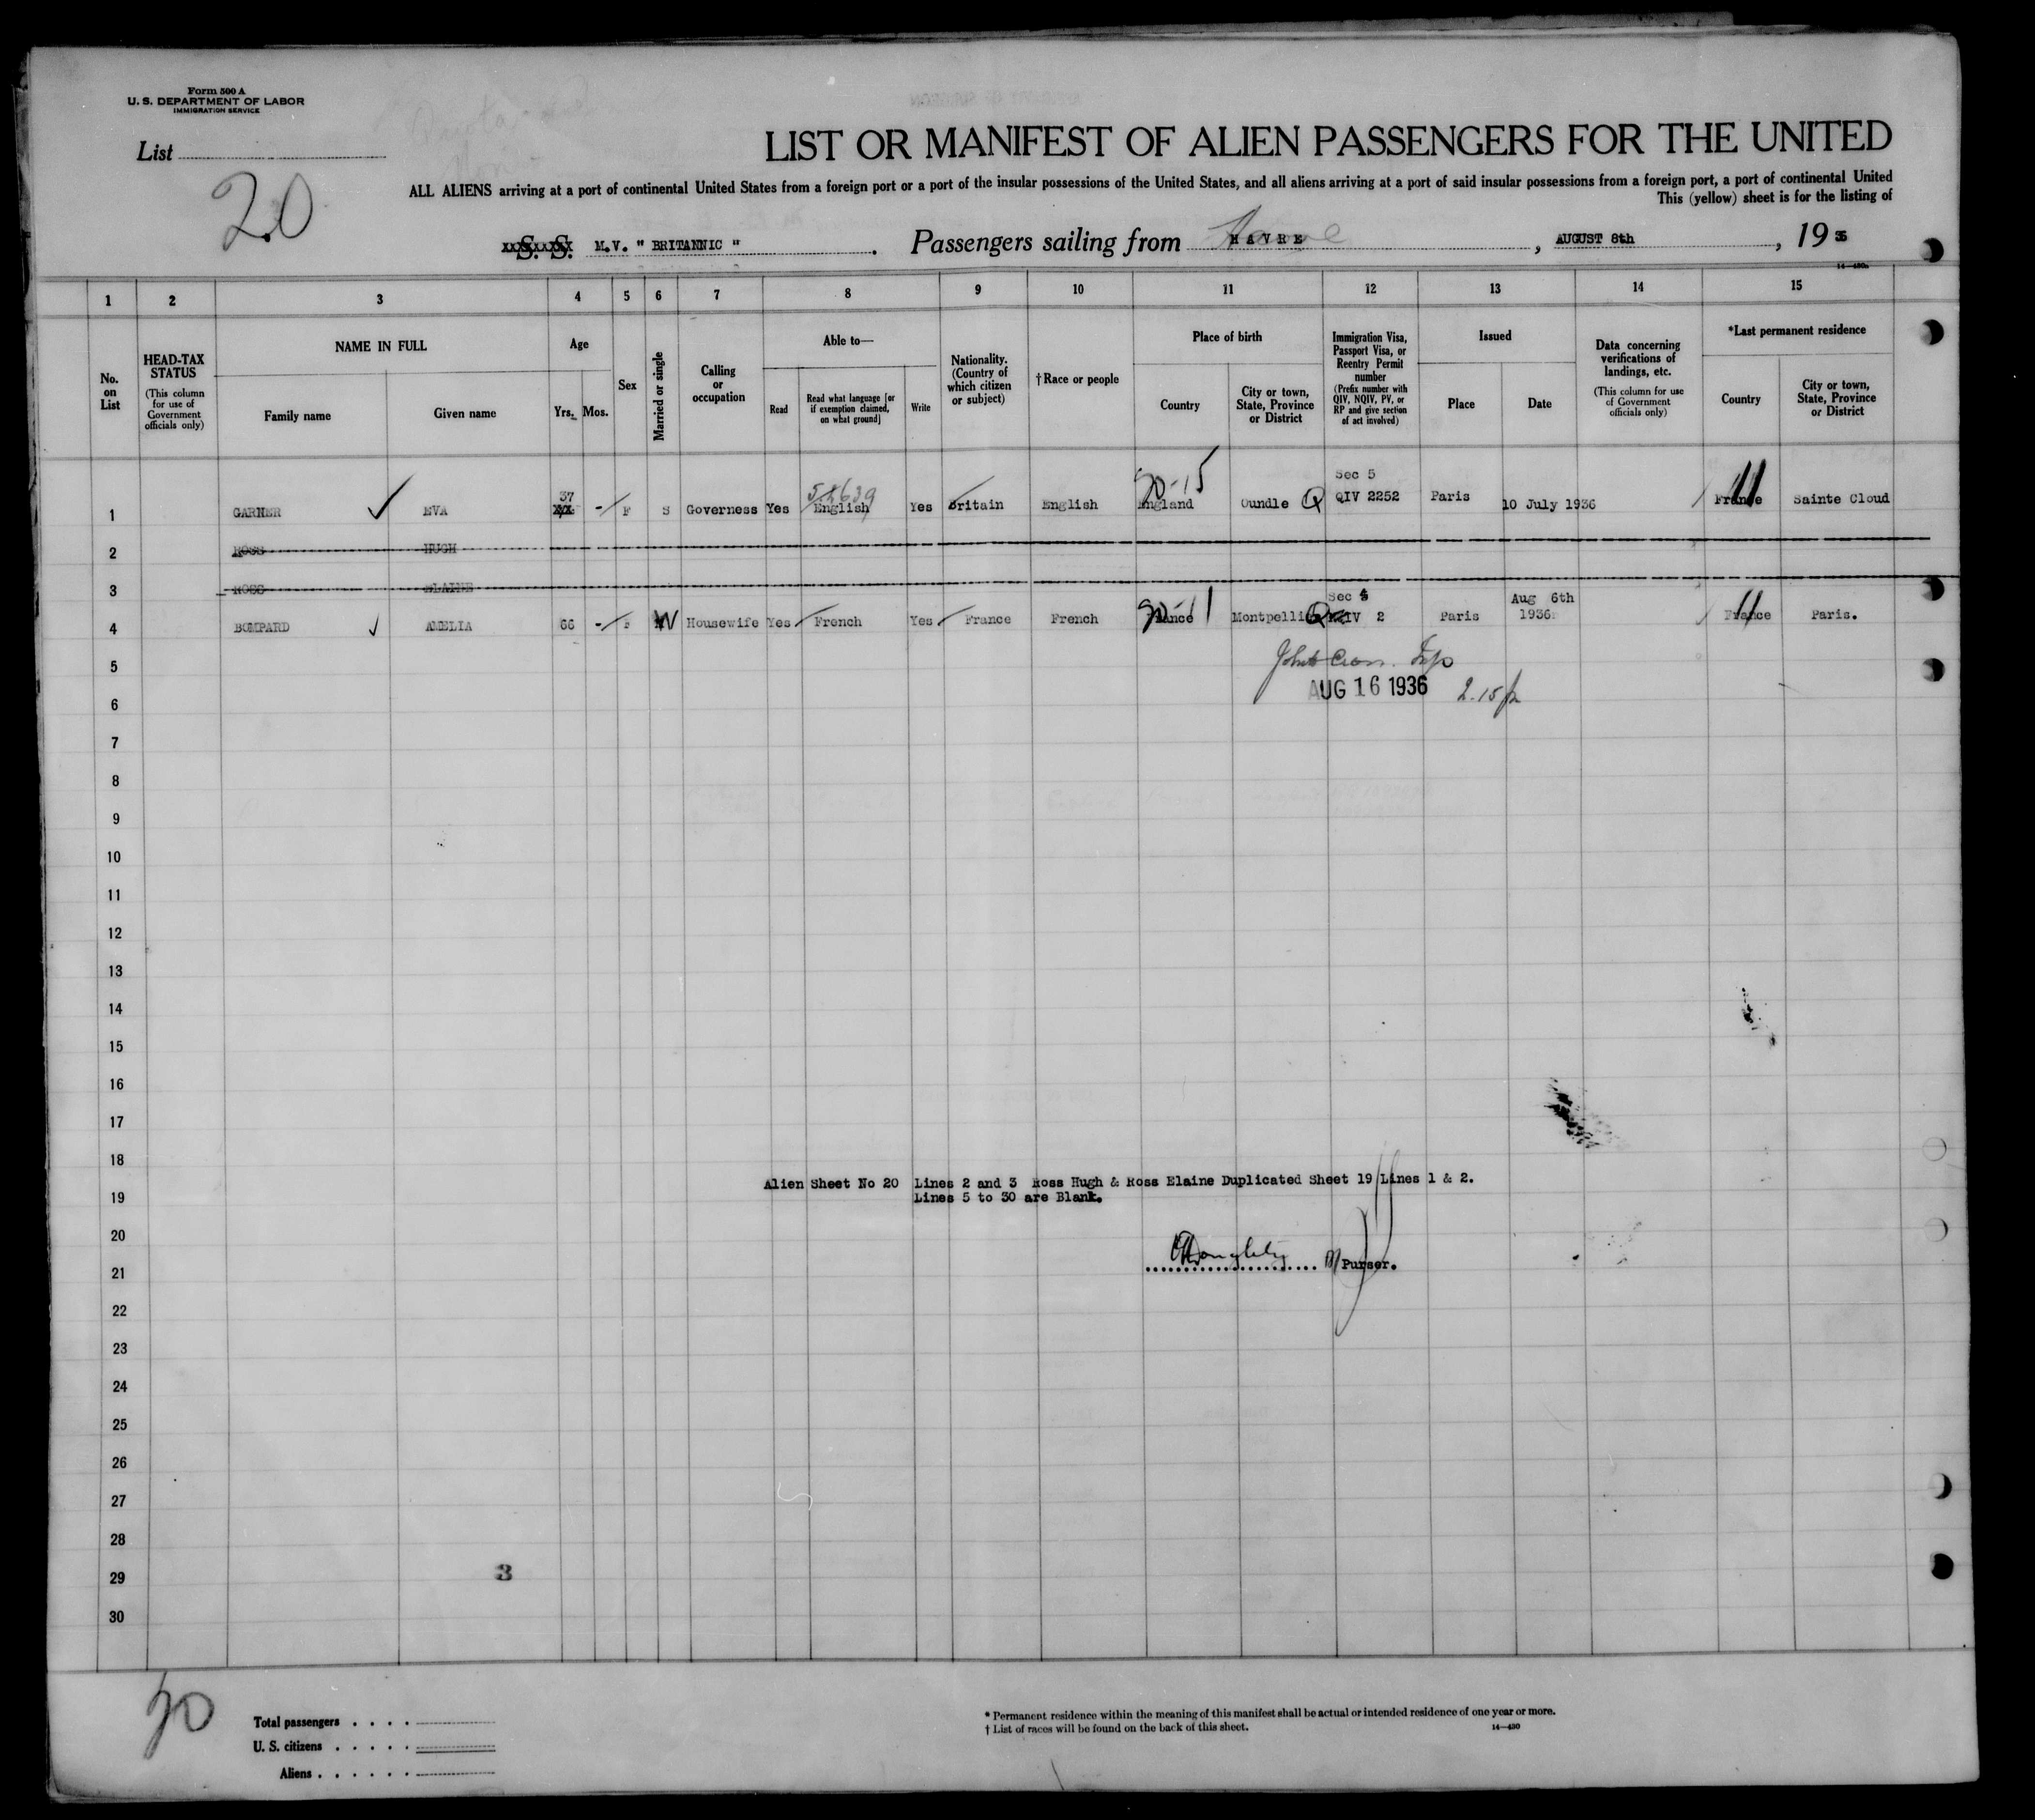 Form 500 A
U. S. DEPARTMENT OF LABOR
IMMIGRATION SERVICE
List
20
LIST OR MANIFEST OF ALIEN PASSENGERS FOR THE UNITED
ALL ALIENS arriving at a port of continental United States from a foreign port or a port of the insular possessions of the United States, and all aliens arriving at a port of said insular possessions from a foreign port, a port of continental United
This (yellow) sheet is for the listing of
S. S. M.V. " BRITANNIC " . Passengers sailing from HAVRE , AUGUST 8th , 19 36
14—430a
1 2 3 4 5 6 7 8 9 10 11 12 13 14 15
No. on List
HEAD-TAX STATUS (This column for use of Government officials only)
NAME IN FULL
Family name
Given name
Age
Yrs. Mos.
Sex
Married or single
Calling or occupation
Able to—
Read
Read what language [or if exemption claimed, on what ground]
Write
Nationality. (Country of which citizen or subject)
†Race or people
Place of birth
Country
City or town, State, Province or District
Immigration Visa, Passport Visa, or Reentry Permit number (Prefix number with QIV, NQIV, PV, or RP and give section of act involved)
Issued
Place
Date
Data concerning verifications of landings, etc. (This column for use of Government officials only)
*Last permanent residence
Country
City or town, State, Province or District
1 GARNER EVA 37 - F S Governess Yes English Yes Britain English England Oundle Q Sec 5 QIV 2252 Paris 10 July 1936 France Sainte Cloud
2 ROSS HUGH
3 ROSS ELAINE
4 BOMPARD AMELIA 66 - F W Housewife Yes French Yes France French France Montpellier Q IV 2 Paris Aug 6th 1936 France Paris.
5
AUG 16 1936
6
7
8
9
10
11
12
13
14
15
16
17
18
Alien Sheet No 20 Lines 2 and 3 Ross Hugh & Ross Elaine Duplicated Sheet 19 Lines 1 & 2.
19
Lines 5 to 30 are Blank.
20
21
Purser.
22
23
24
25
26
27
28
29
3
30
20
Total passengers
U. S. citizens
Aliens
* Permanent residence within the meaning of this manifest shall be actual or intended residence of one year or more.
† List of races will be found on the back of this sheet.
14—430